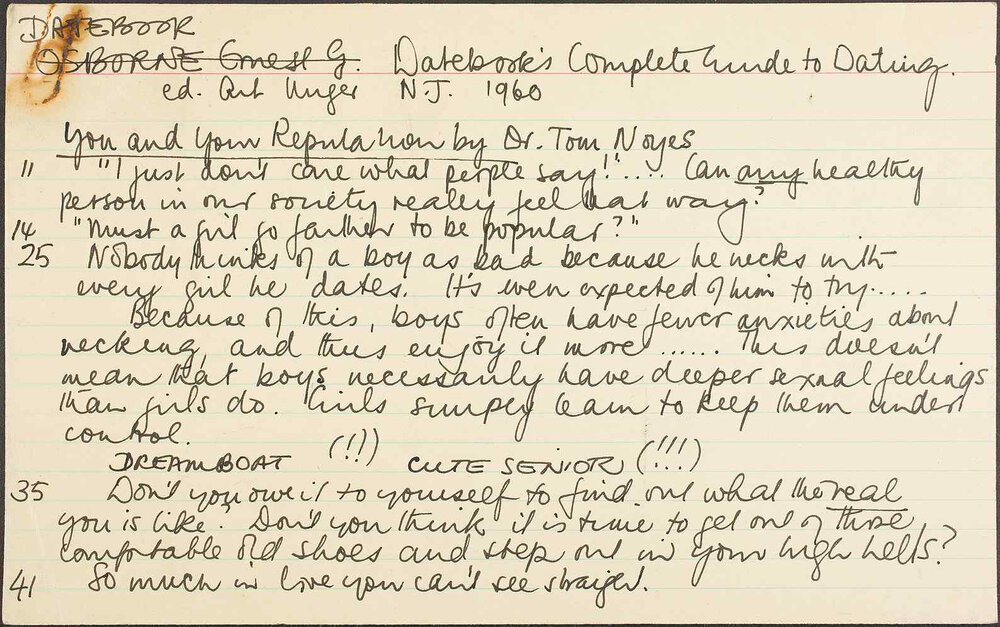 DATEBOOK
OSBORNE Ernest G. Datebook's Complete Guide to Dating.
ed. Art Unger N.J. 1960
You and Your Reputation by Dr. Tom Noyes
" "I just don't care what people say!".... Can any healthy
person in our society really feel that way?
14 "Must a girl go farther to be popular?"
25 Nobody thinks of a boy as bad because he necks with
every girl he dates. It's even expected of him to try.....
Because of this, boys often have fewer anxieties about
necking, and thus enjoy it more...... This doesn't
mean that boys necessarily have deeper sexual feelings
than girls do. Girls simply learn to keep them under
control.
DREAMBOAT (!!) CUTE SENIOR (!!!)
35 Don't you owe it to yourself to find out what the real
you is like? Don't you think it is time to get out of those
comfortable old shoes and step out in your high hells?
41 So much in love you can't see straight.